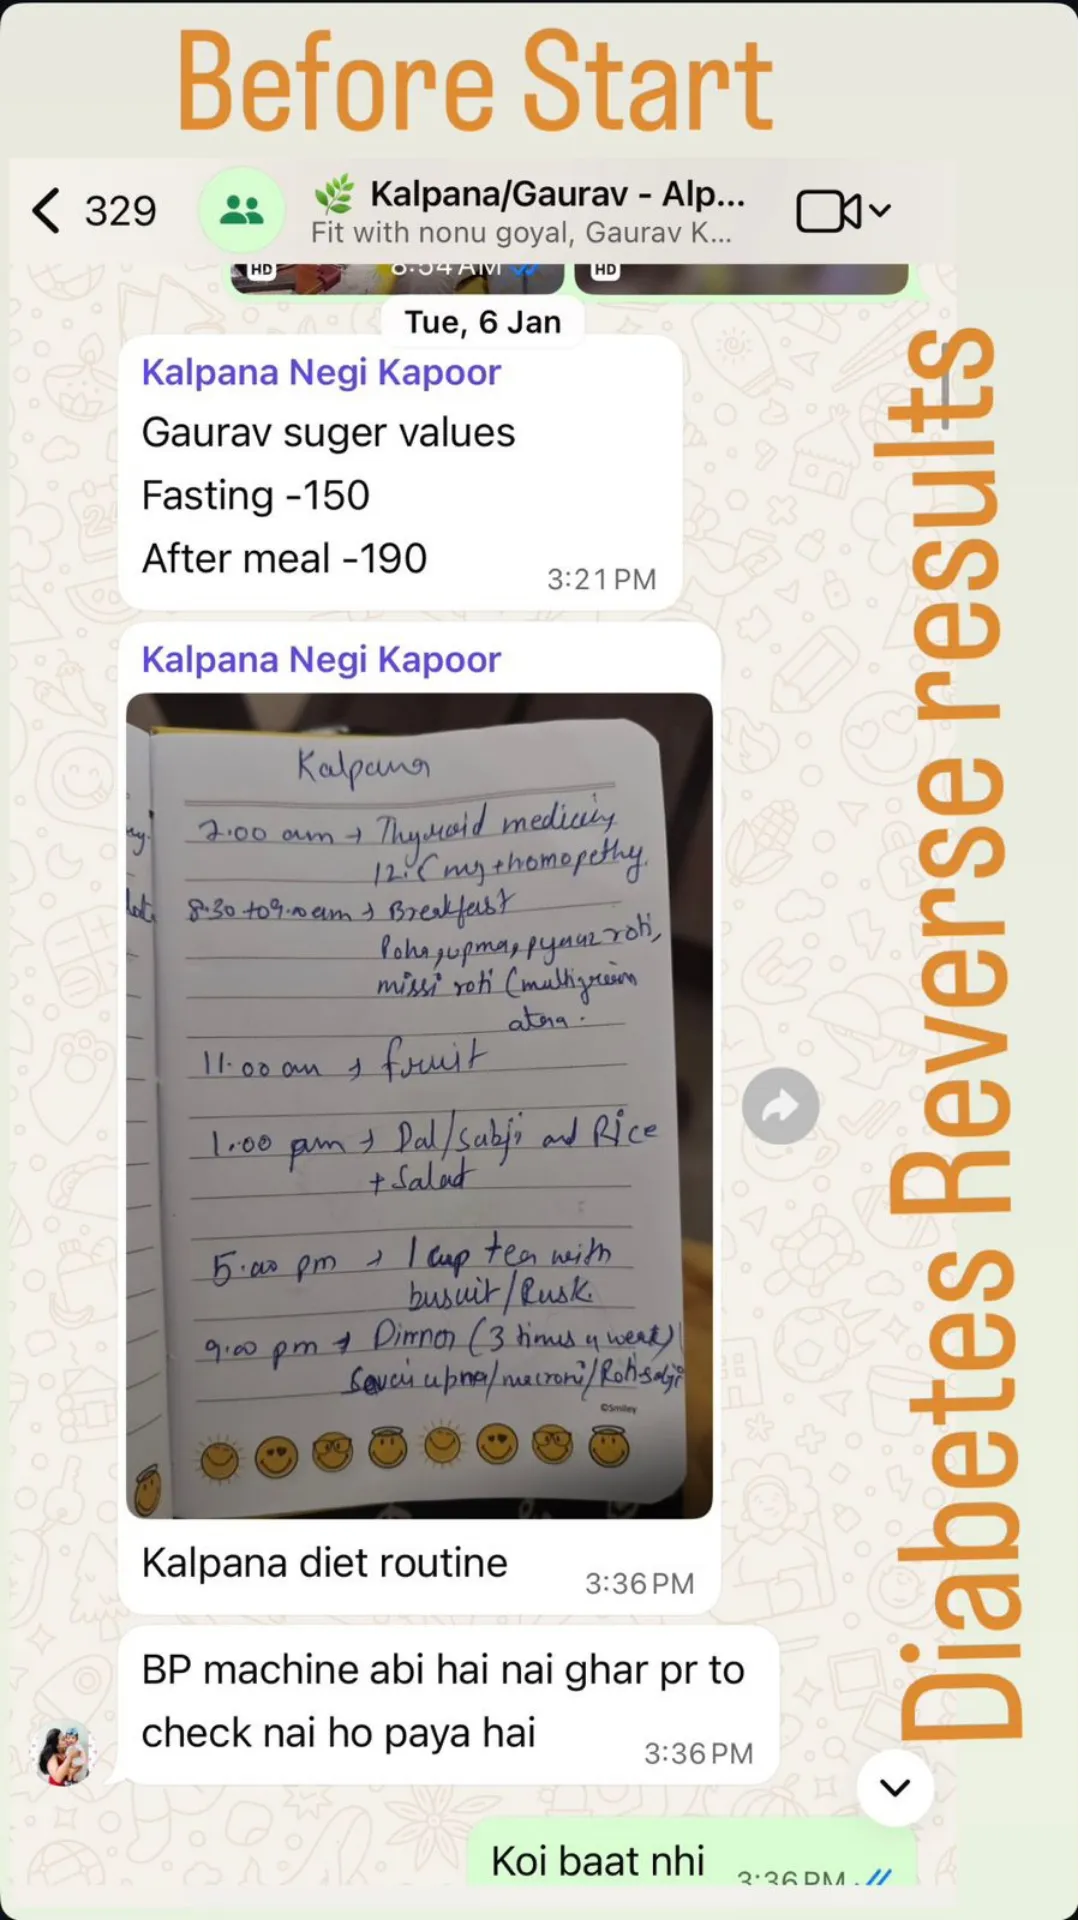 Before Start
329
Kalpana/Gaurav - Alp...
Fit with nonu goyal, Gaurav K...
HD
8:54 AM
HD
Tue, 6 Jan
Kalpana Negi Kapoor
Gaurav suger values
Fasting -150
After meal -190
3:21 PM
Kalpana Negi Kapoor
Kalpana
7.00 am → Thyroid
12.5 mg + homopethy.
8.30 to 9.00 am → Breakfast
Poha, upma, pyaaz roti,
missi roti (multigrain
11.00 am → fruit
1.00 pm → Dal/Sabji and Rice
+ Salad
5.00 pm → 1 cup tea with
/Rusk.
9.00 pm → Dinner (3 times a week)
/Roti-sabji
©Smiley
Kalpana diet routine
3:36 PM
BP machine abi hai nai ghar pr to
check nai ho paya hai
3:36 PM
Koi baat nhi
3:36 PM
Diabetes Reverse results